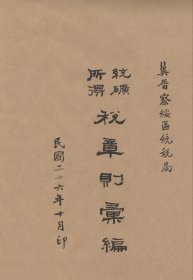 冀晉察綏區統稅局
統礦
所得
稅章則彙編
民國二十六年十月印